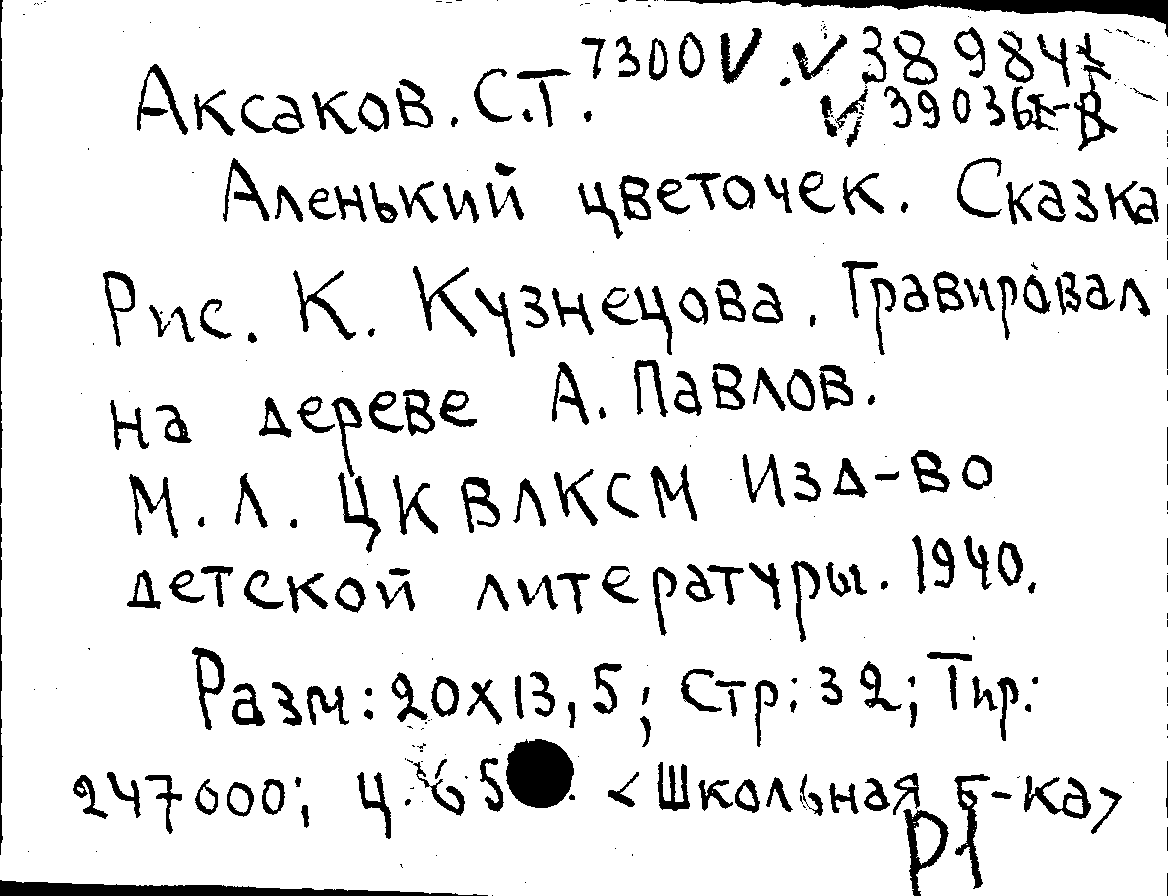 Аксаков. С.Т. 7300 V. V 38984
V 39036
Аленький цветочек. Сказка
Рис. К. Кузнецова. Гравировал
на дереве А. Павлов.
М. Л. ЦК ВЛКСМ Изд-во
детской литературы. 1940.
Разм: 20х13,5; Стр: 32; Тир:
247000; Ц. 65 <Школьная б-ка>
Р1